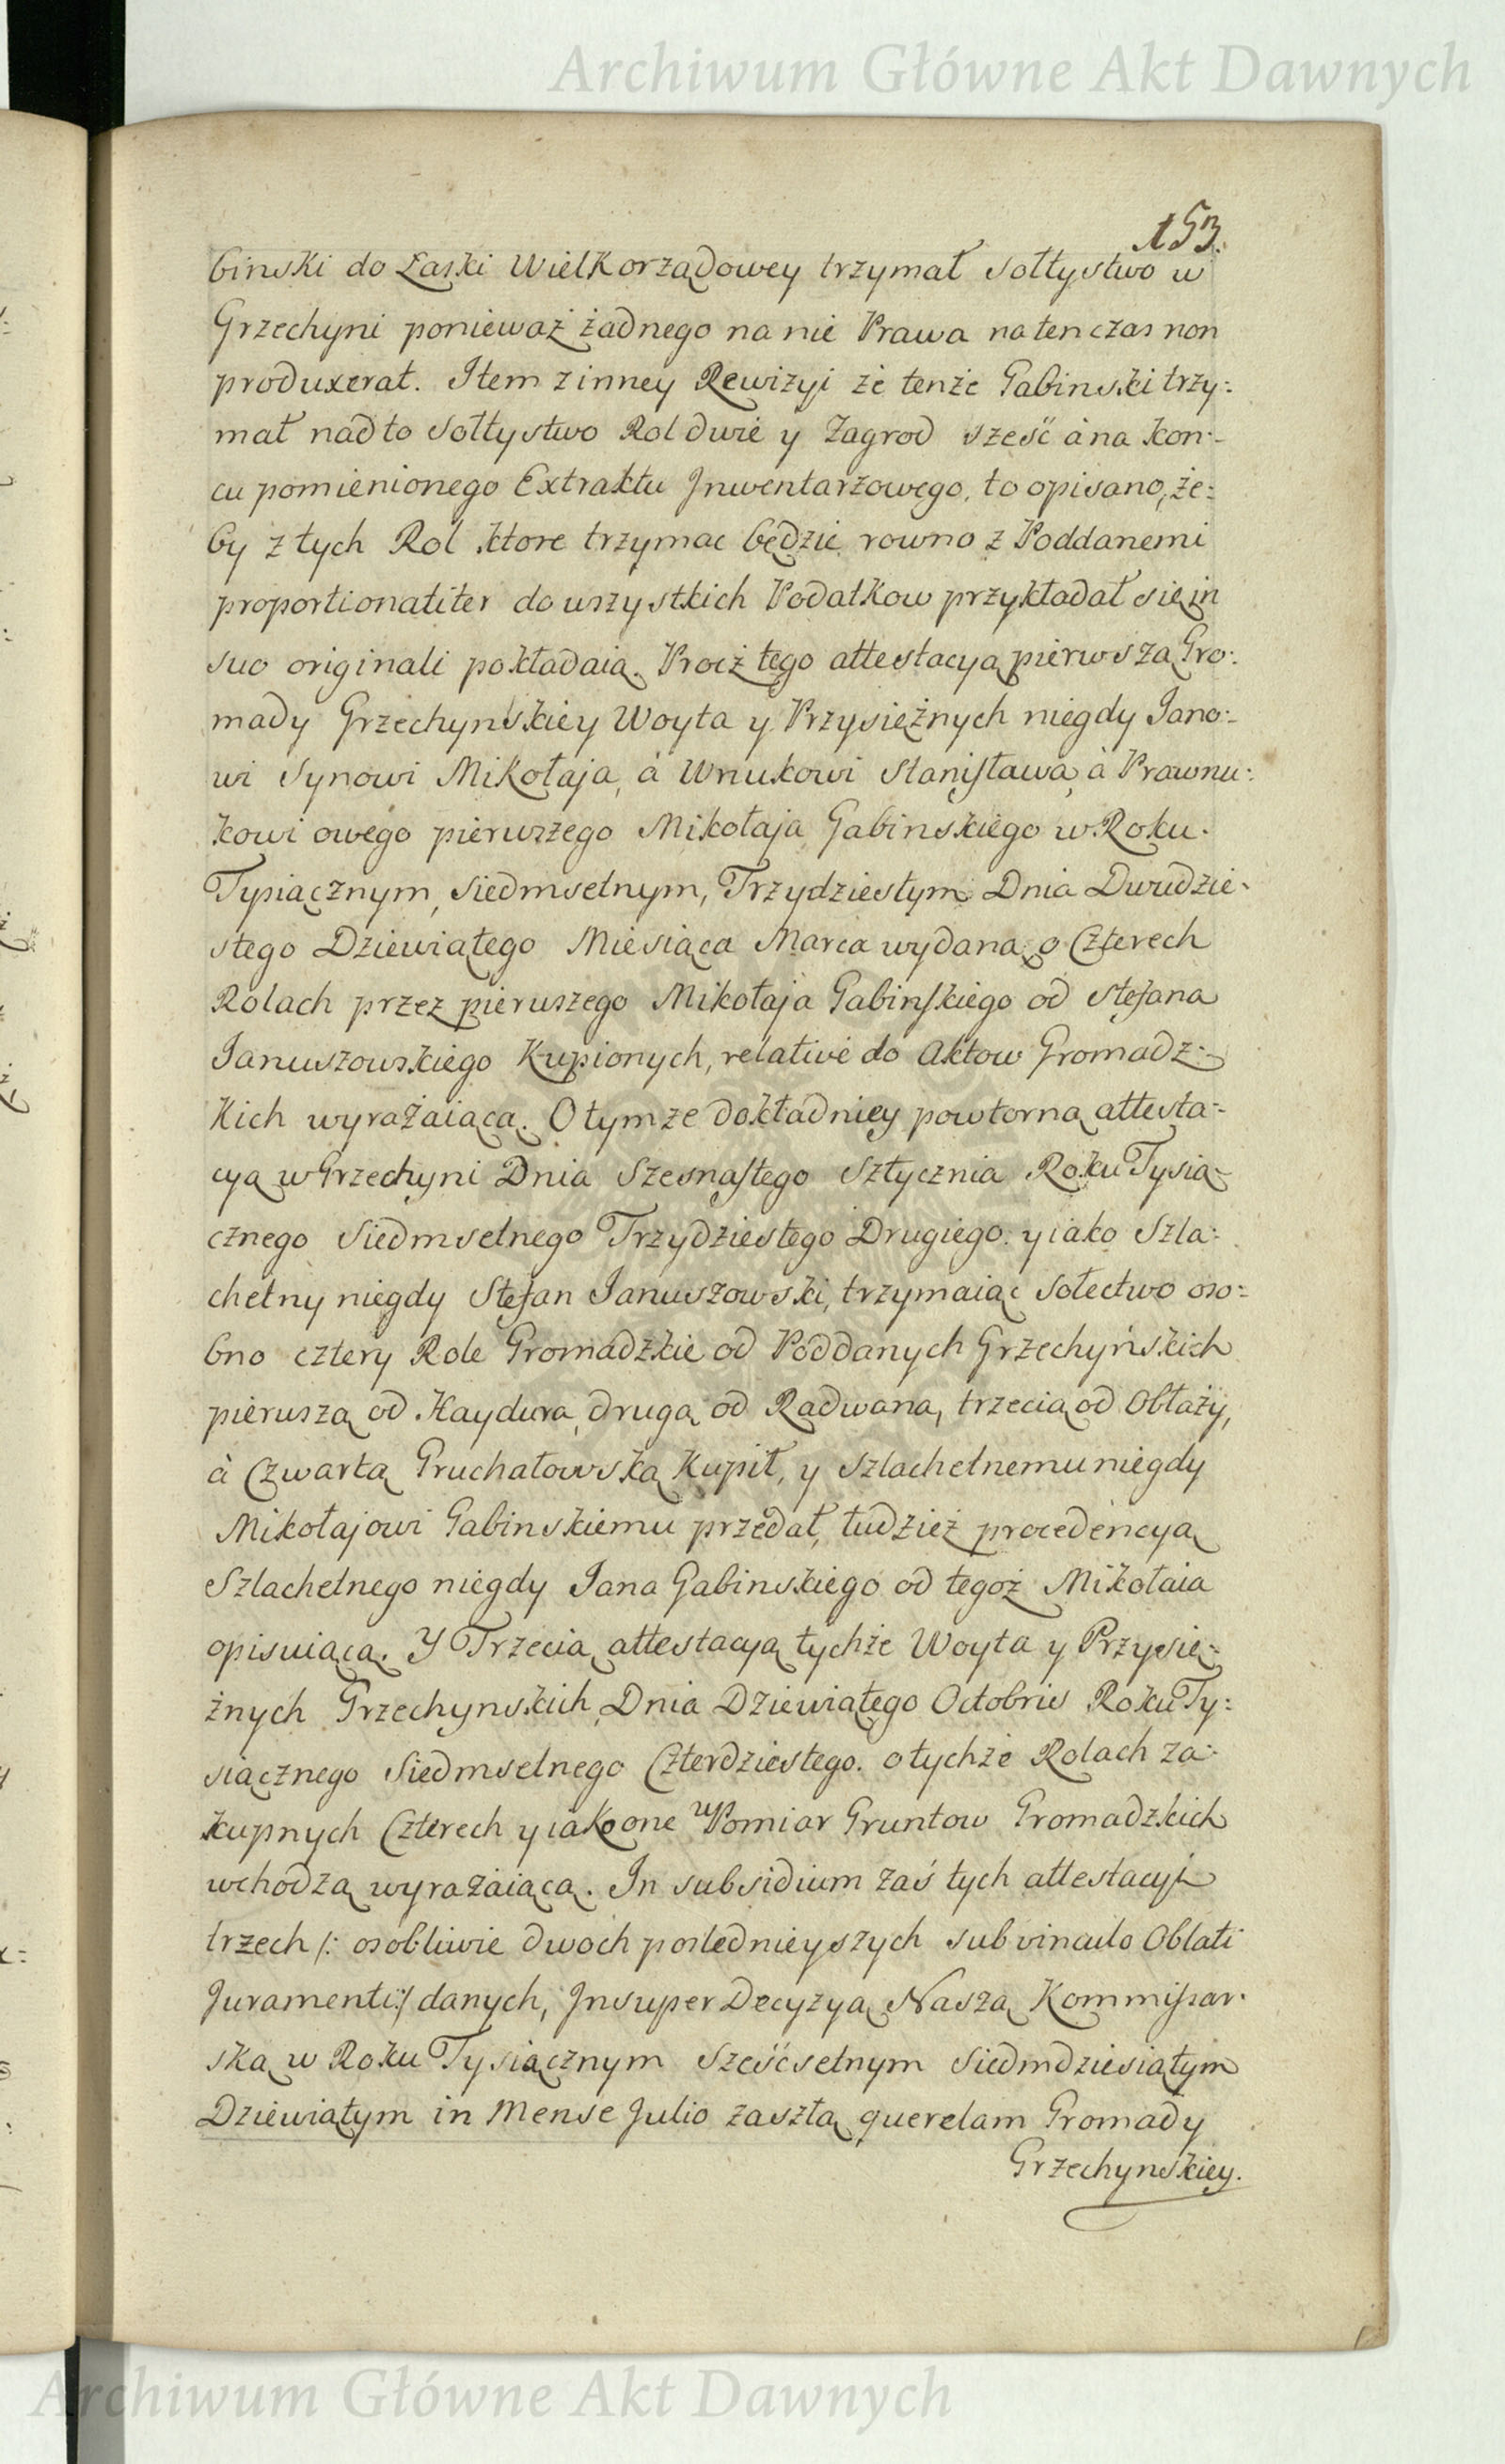 Archiwum Główne Akt Dawnych
153.
binski do Łaski Wielkorządowey trzymał Sołtystwo w
Grzechyni ponieważ żadnego na nie Prawa natenczas non
produxerat. Item z inney Rewizyi że tenże Gabinski trzy:
mał nadto Sołtystwo Rol dwie y Zagrod sześć à na kon:
cu pomienionego Extraktu Jnwentarzowego, to opisano, że:
by z tych Rol ktore trzymac będzie rowno z Poddanemi
proportionatiter do wszystkich Podatkow przykładał się in
suo originali pokładaią. Procz tego attestacyą pierwszą Gro:
mady Grzechynskiey Woyta y Przysiężnych niegdy Jano:
wi Synowi Mikołaja, à Wnukowi Stanisława, à Prawnu:
kowi owego pierwszego Mikołaja Gabinskiego w Roku.
Tysiącznym, Siedmsetnym, Trzydziestym Dnia Dwudzie:
stego Dziewiątego Miesiąca Marca wydaną o Czterech
Rolach przez pierwszego Mikołaja Gabinskiego od Stefana
Januszowskiego Kupionych, relative do Aktow Gromadz:
kich wyrażaiącą. O tymże dokładniey powtorną attesta:
cyą w Grzechyni Dnia Szesnastego Sztycznia Roku Tysią:
cznego Siedmsetnego Trzydziestego Drugiego. y iako Szla:
chetny niegdy Stefan Januszowski, trzymaiąc Sołectwo oso:
bno cztery Role Gromadzkie od Poddanych Grzechyńskich
pierwszą od Haydura, drugą od Radwana, trzecią od Obłaży,
à Czwartą Pruchałowską Kupił, y Szlachetnemu niegdy
Mikołajowi Gabinskiemu przedał, tudzież procedencyą
Szlachetnego niegdy Jana Gabinskiego od tegoż Mikołaia
opisuiącą. Y Trzecią attestacyą tychże Woyta y Przysię:
żnych Grzechynskich, Dnia Dziewiątego Octobris Roku Ty:
siącznego Siedmsetnego Czterdziestego. o tychże Rolach za:
kupnych Czterech y iako one w Pomiar Gruntow Gromadzkich
wchodzą wyrażaiącą. In subsidium zaś tych attestacyi
trzech /: osobliwie dwoch poslednieyszych sub vinculo Oblati
Juramenti:/ danych, Jnsuper Decyzyą Naszą Kommissar:
ską w Roku Tysiącznym Sześćsetnym Siedmdziesiątym
Dziewiątym in Mense Julio zaszłą querelam Gromady
Grzechynskiey.
Archiwum Główne Akt Dawnych